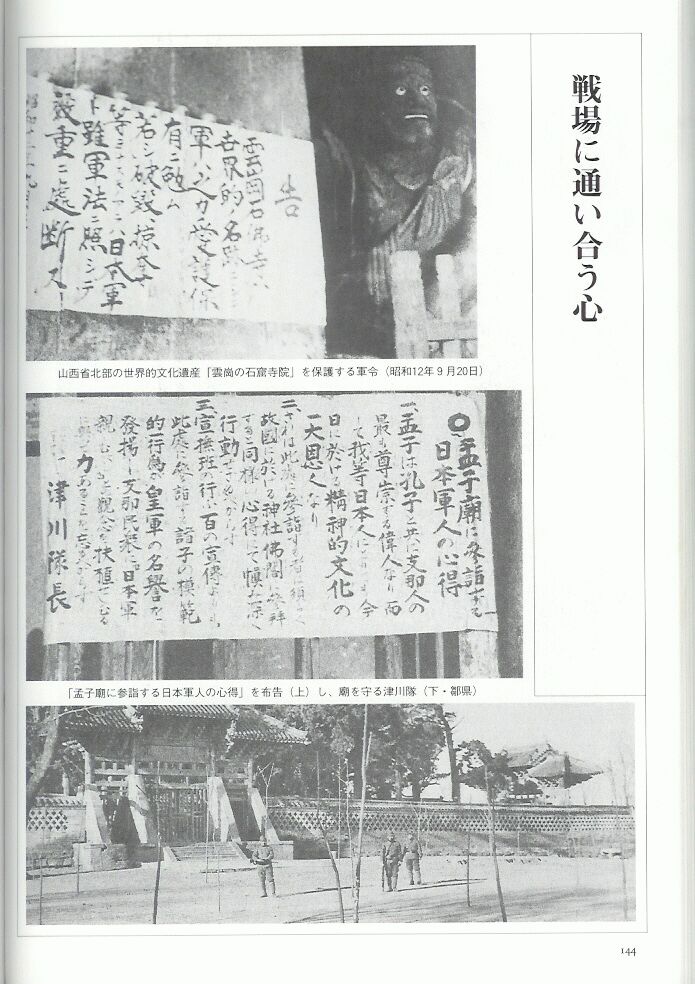 戦場に通い合う心
告
雲岡石佛寺ハ
世界的ノ名蹟
軍ハ之カ愛護保
有ニ勉ム
若シ破毀掠奪
等 日本軍
ト雖軍法ニ照シテ
嚴重ニ處断ス
山西省北部の世界的文化遺産「雲崗の石窟寺院」を保護する軍令（昭和12年9月20日）
〇孟子廟に参詣する
日本軍人の心得
一、孟子は孔子と共に支那人の
最も尊崇する偉人なり而
て我等日本人に 今
日に於ける精神的文化の
一大恩人なり
二、 此處に参詣する者は須く
故國に於ける神社佛閣に参拜
すると同様の心得にて慎み深く
行動せさるへからす
三、宣撫班の行ふ百の宣傳よりも
此處に参詣する諸子の模範
的行為が皇軍の名譽を
發揚し支那民衆に日本軍
親 観念を扶植する
力ある
津川隊長
「孟子廟に参詣する日本軍人の心得」を布告（上）し、廟を守る津川隊（下・鄒県）
144